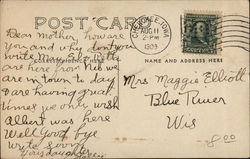 POST CARD
Dear Mother, how are
you and why don't you
write
are here from
are in town to day
and are having great
times we only wish
Albert was here
Well Good bye
write soon
CHEROKEE, IOWA
AUG 11
2-PM
1909
NAME AND ADDRESS HERE
Mrs Maggie Elliott
Blue River
Wis
8.00